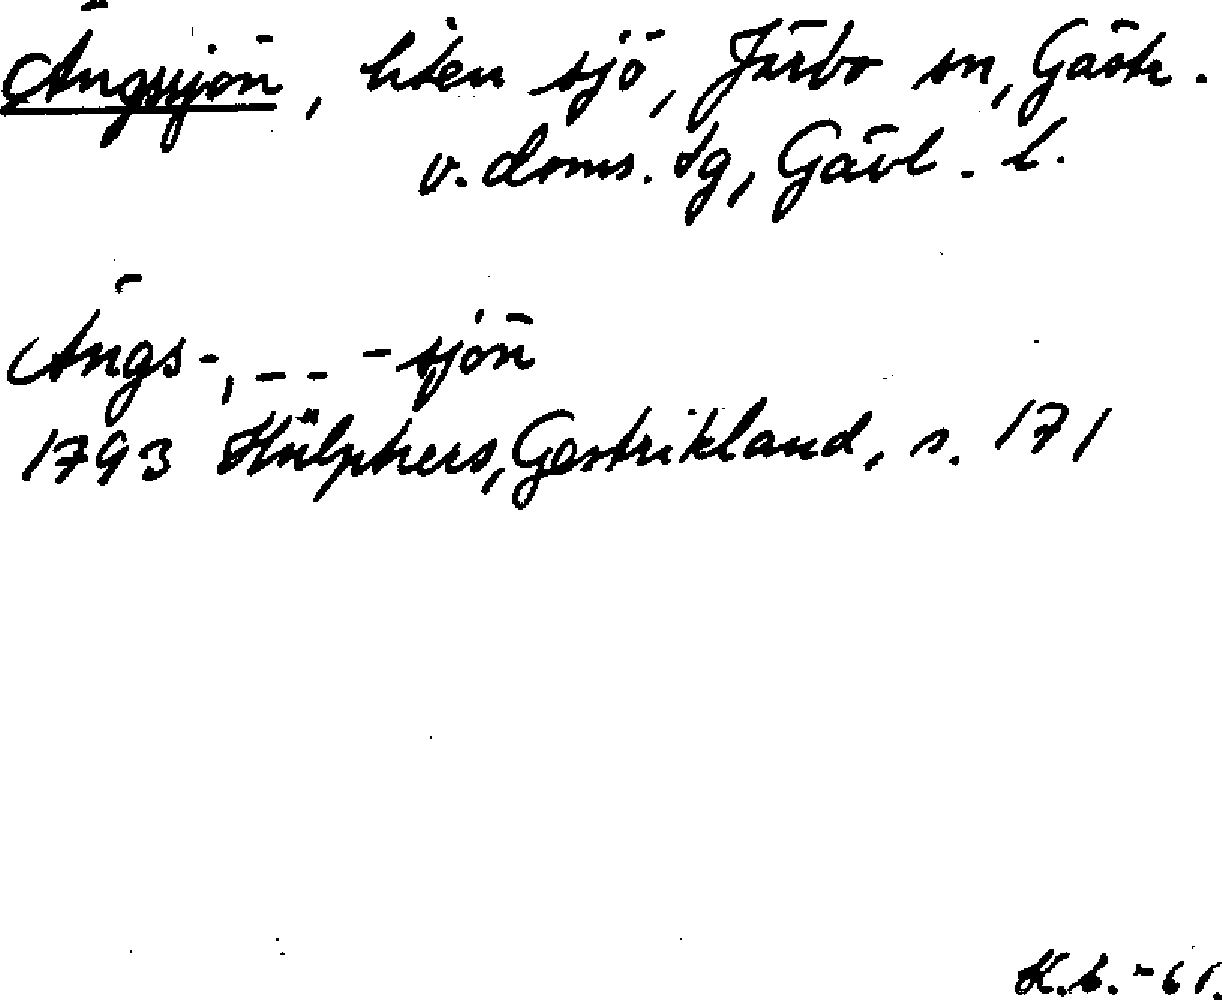 Ängssjön, liten sjö, Järbo sn, Gästr.
v. doms. sg, Gävl. l.
Ängs-, - - -sjön
1793 Hülphers, Gestrikland, s. 171
K.b. -61.